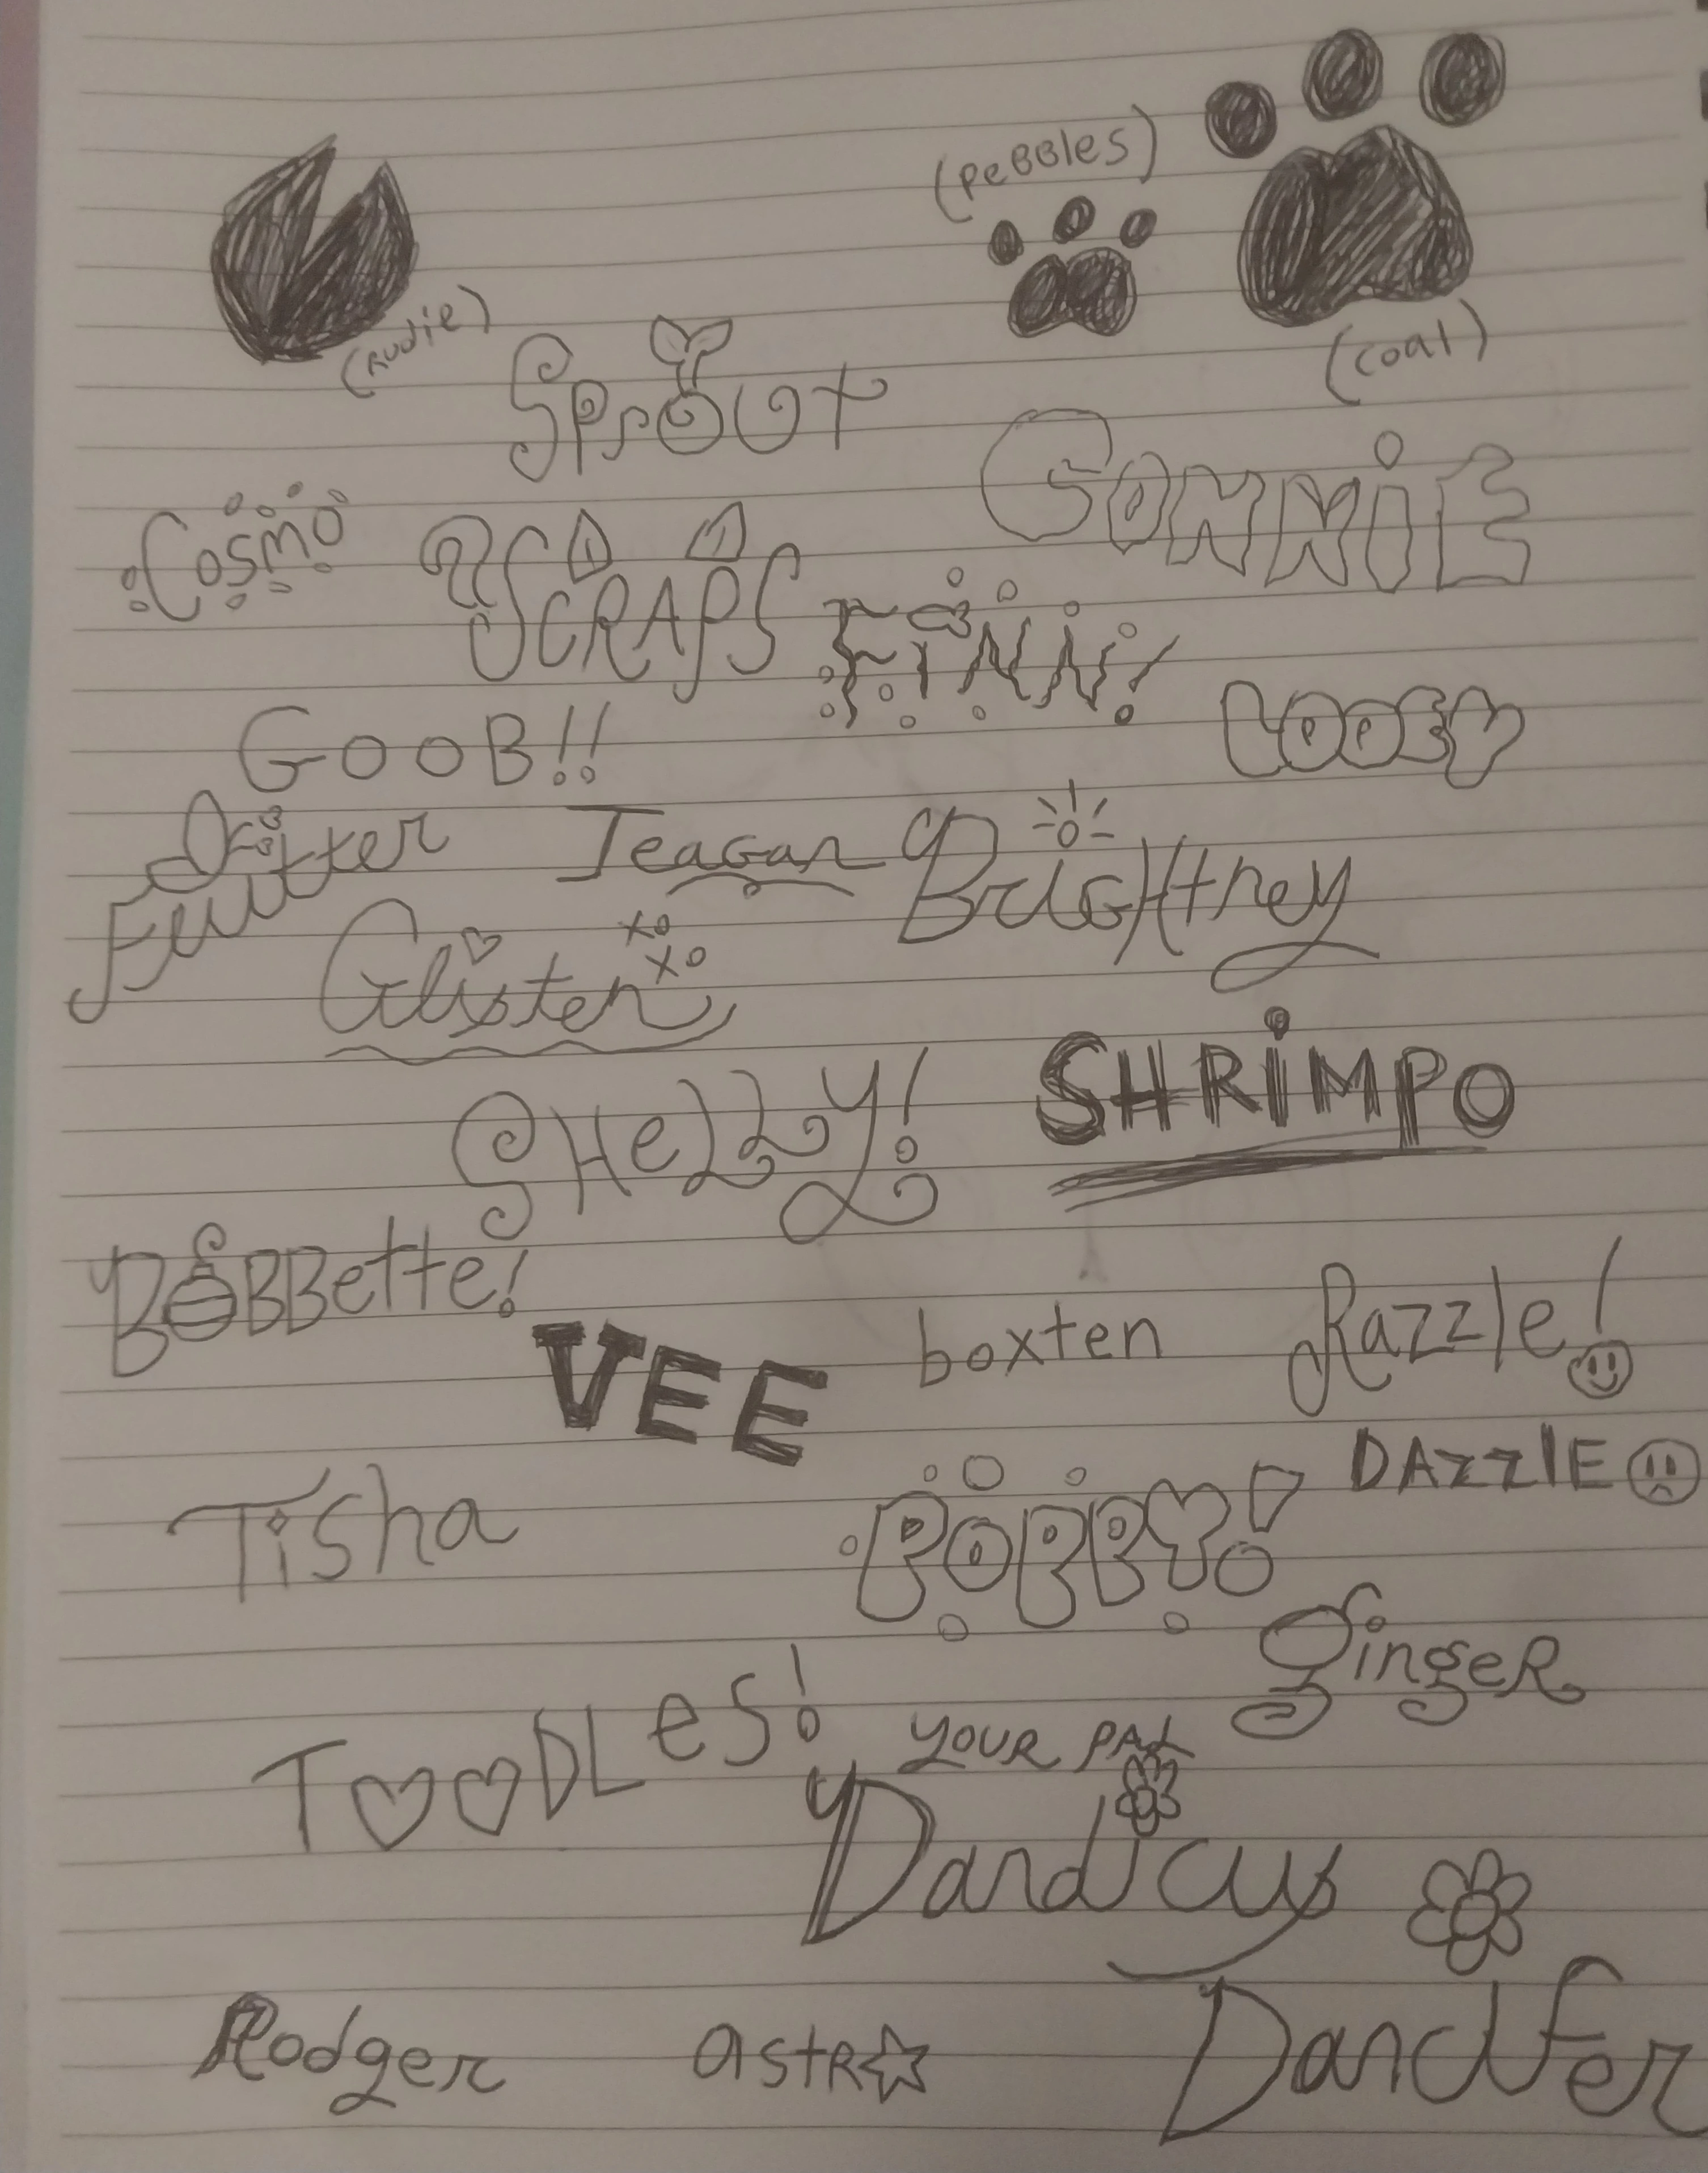 (Pebbles)
(Rudie)
(coal)
Sprout
Connie
Cosmo
SCRAPS
FINN!
GOOB!!
LOOEY
Flutter
Teagan
BriGHtney
Glisten
xo
xo
SHeLLY!
SHRiMPO
BOBBette!
VEE
boxten
Razzle!
DAzzlE
Tisha
POPPY!
GingeR
TOODLes!
YOUR PAL
Dandicus
Rodger
astR
Dandfer